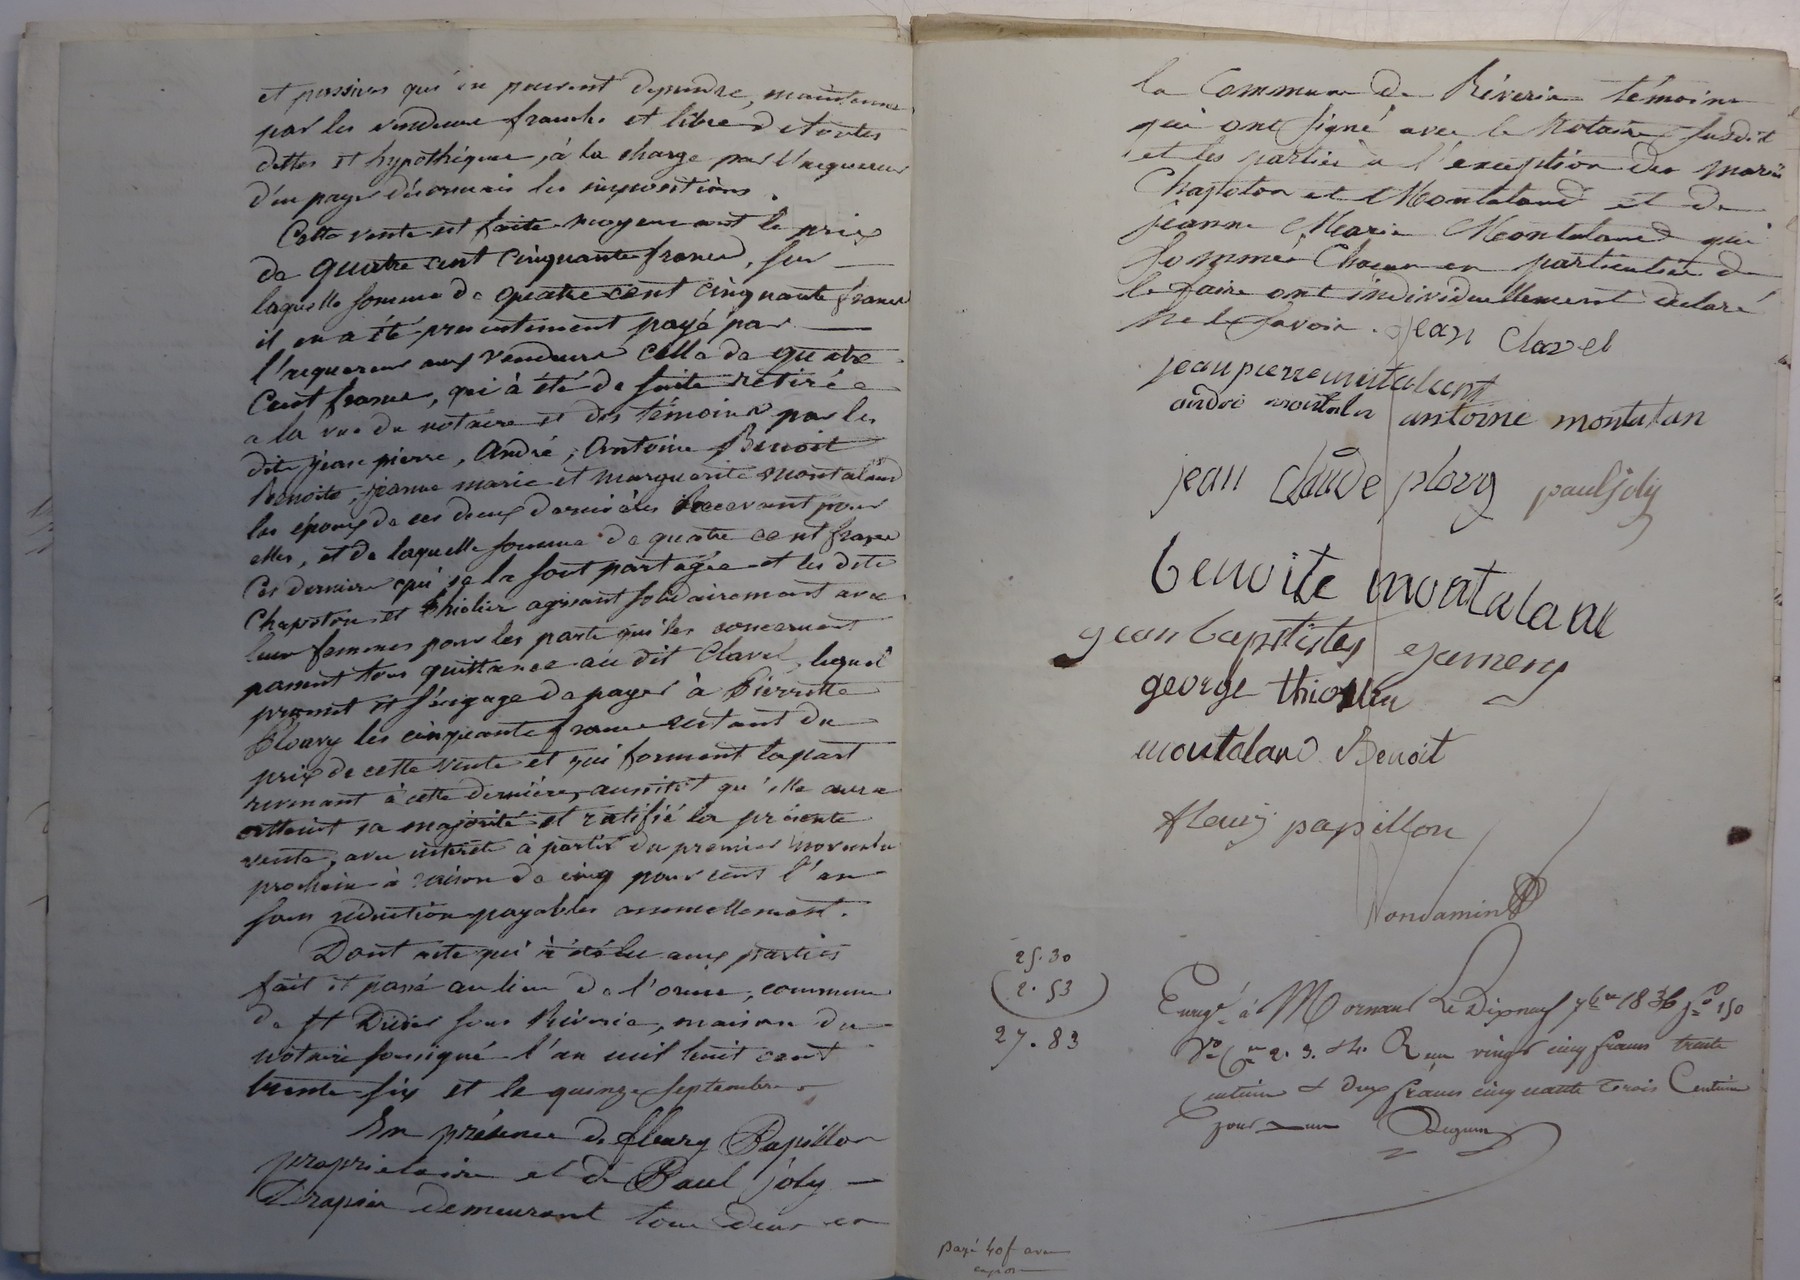 et passives qui en peuvent dependre, maintenue
par les vendeurs franche et libre de toutes
dettes et hypothéques, à la charge par l'acquereur
d'en payer désormais les impositions.
Cette vente est faite moyennant le prix
de quatre cent cinquante francs, sur
laquelle somme de quatre cent cinquante francs
il en a été presentement payé par
l'acquereur aux vendeurs celle de quatre
cent francs, qui à été de suite retirée
a la vue du notaire et des témoins par les
dits jean pierre, andré, antoine Benoit
benoite, jeanne marie et marguerite montaland
les époux de ces deux dernières recevant pour
elles, et de laquelle somme de quatre cent francs
ces derniers qui se la sont partagée et les dits
Chapoton et thiolier agissant solidairement avec
leur femmes pour les parts qui les concernent
passent tous quittance au dit Clavel, lequel
promet et s'engage de payer à Pierrette
Plouvy les cinquante francs restant du
prix de cette vente et qui forment la part
revenant à cette dernière, aussitôt qu'elle aura
atteint sa majorité et ratifié la présente
vente, avec intérêts à partir du premier novembre
prochain à raison de cinq pour cent l'an
sans réduction payables annuellement.
Dont acte qui à été lu aux parties
fait et passé au lieu de l'orme, commune
de St Didier sous Riverie, maison du
notaire soussigné l'an mil huit cent
trente six et le quinze septembre
En présence de fleury Papillon
propriétaire et de Paul joly
Drapier demeurant tous deux en
la Commune de Riverie témoins
qui ont signé avec le Notaire susdit
et les parties a l'exception des mariés
Chapoton et Montaland et de
jeanne Marie Montaland qui
sommés Chacun en particulier de
le faire ont individuellement déclaré
ne le savoir. jean Clavel
jean pierre montaland
andré montalan antoine montalan
jean Claude plovy paul joly
benoite montaland
jean baptistes
george thiollier
montaland Benoit
fleury papillon
25.30
2.53
27.83
Enregé. à Mornant Le Dix neuf 7bre 1836 fo 150
Vo Ce 2. 3. et 4. Reçu vingt cinq francs trente
centimes et deux francs cinquante trois Centimes
pour
payé 40f avec